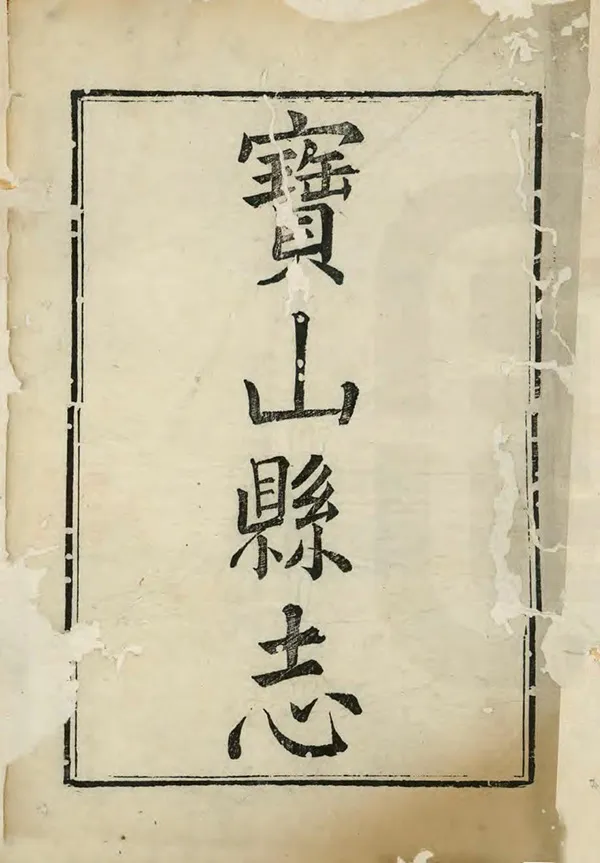 寶山縣志